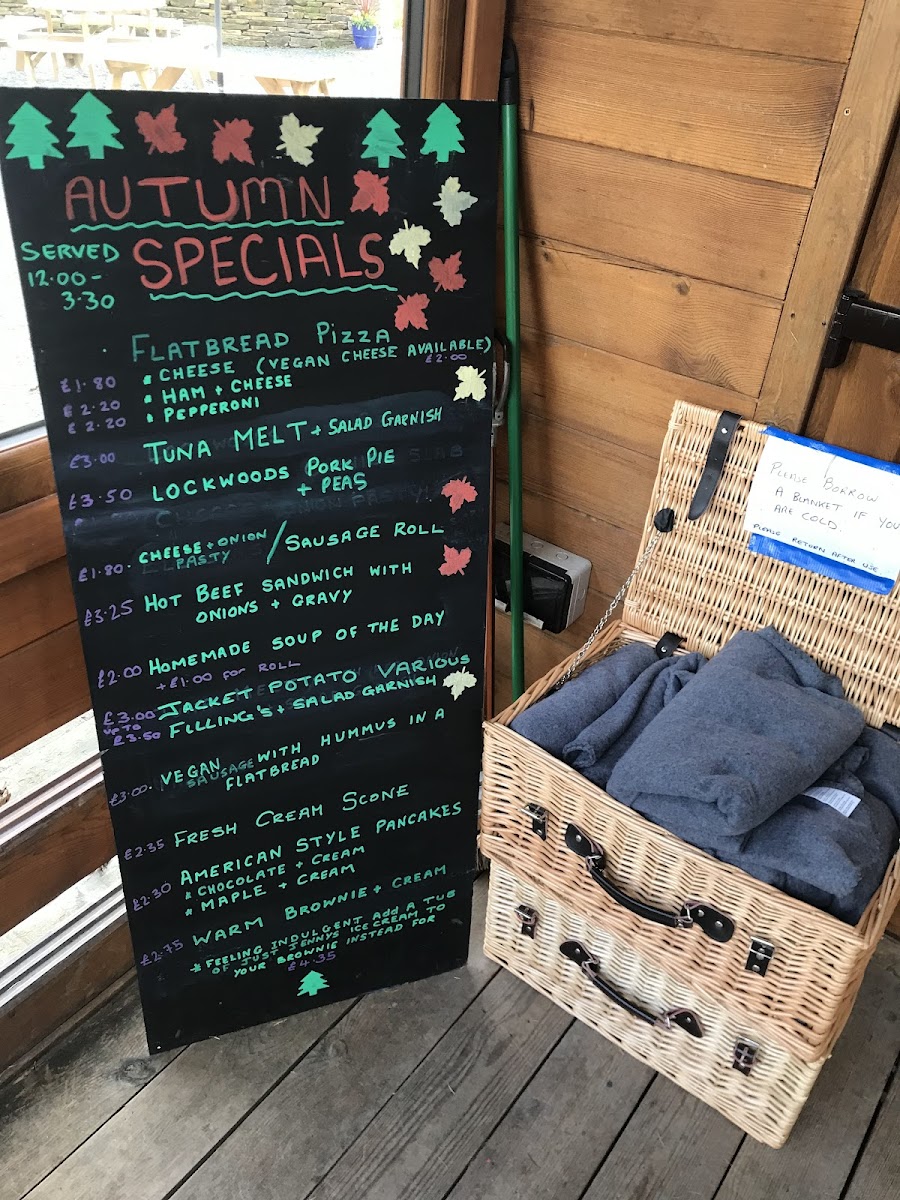 AUTUMN
SPECIALS
SERVED
12.00-
3.30
FLATBREAD PIZZA
£1.80 CHEESE (VEGAN CHEESE AVAILABLE)
£2.00
£2.20 HAM + CHEESE
£2.20 PEPPERONI
£3.00 TUNA MELT + SALAD GARNISH
£3.50 LOCKWOODS PORK PIE
+ PEAS
£1.80. CHEESE + ONION / SAUSAGE ROLL
PASTY
£3.25 HOT BEEF SANDWICH WITH
ONIONS + GRAVY
£2.00 HOMEMADE SOUP OF THE DAY
+ £1.00 FOR ROLL
£3.00 JACKET POTATO VARIOUS
UP TO
£3.50 FILLING'S + SALAD GARNISH
£3.00. VEGAN SAUSAGE WITH HUMMUS IN A
FLATBREAD
£2.35 FRESH CREAM SCONE
£2.30 AMERICAN STYLE PANCAKES
* CHOCOLATE + CREAM
* MAPLE + CREAM
£2.75 WARM BROWNIE + CREAM
* FEELING INDULGENT ADD A TUB
OF JUST JENNYS ICE CREAM TO
YOUR BROWNIE INSTEAD FOR
£4.35
PLEASE BORROW
A BLANKET IF YOU
ARE COLD.
PLEASE RETURN AFTER USE